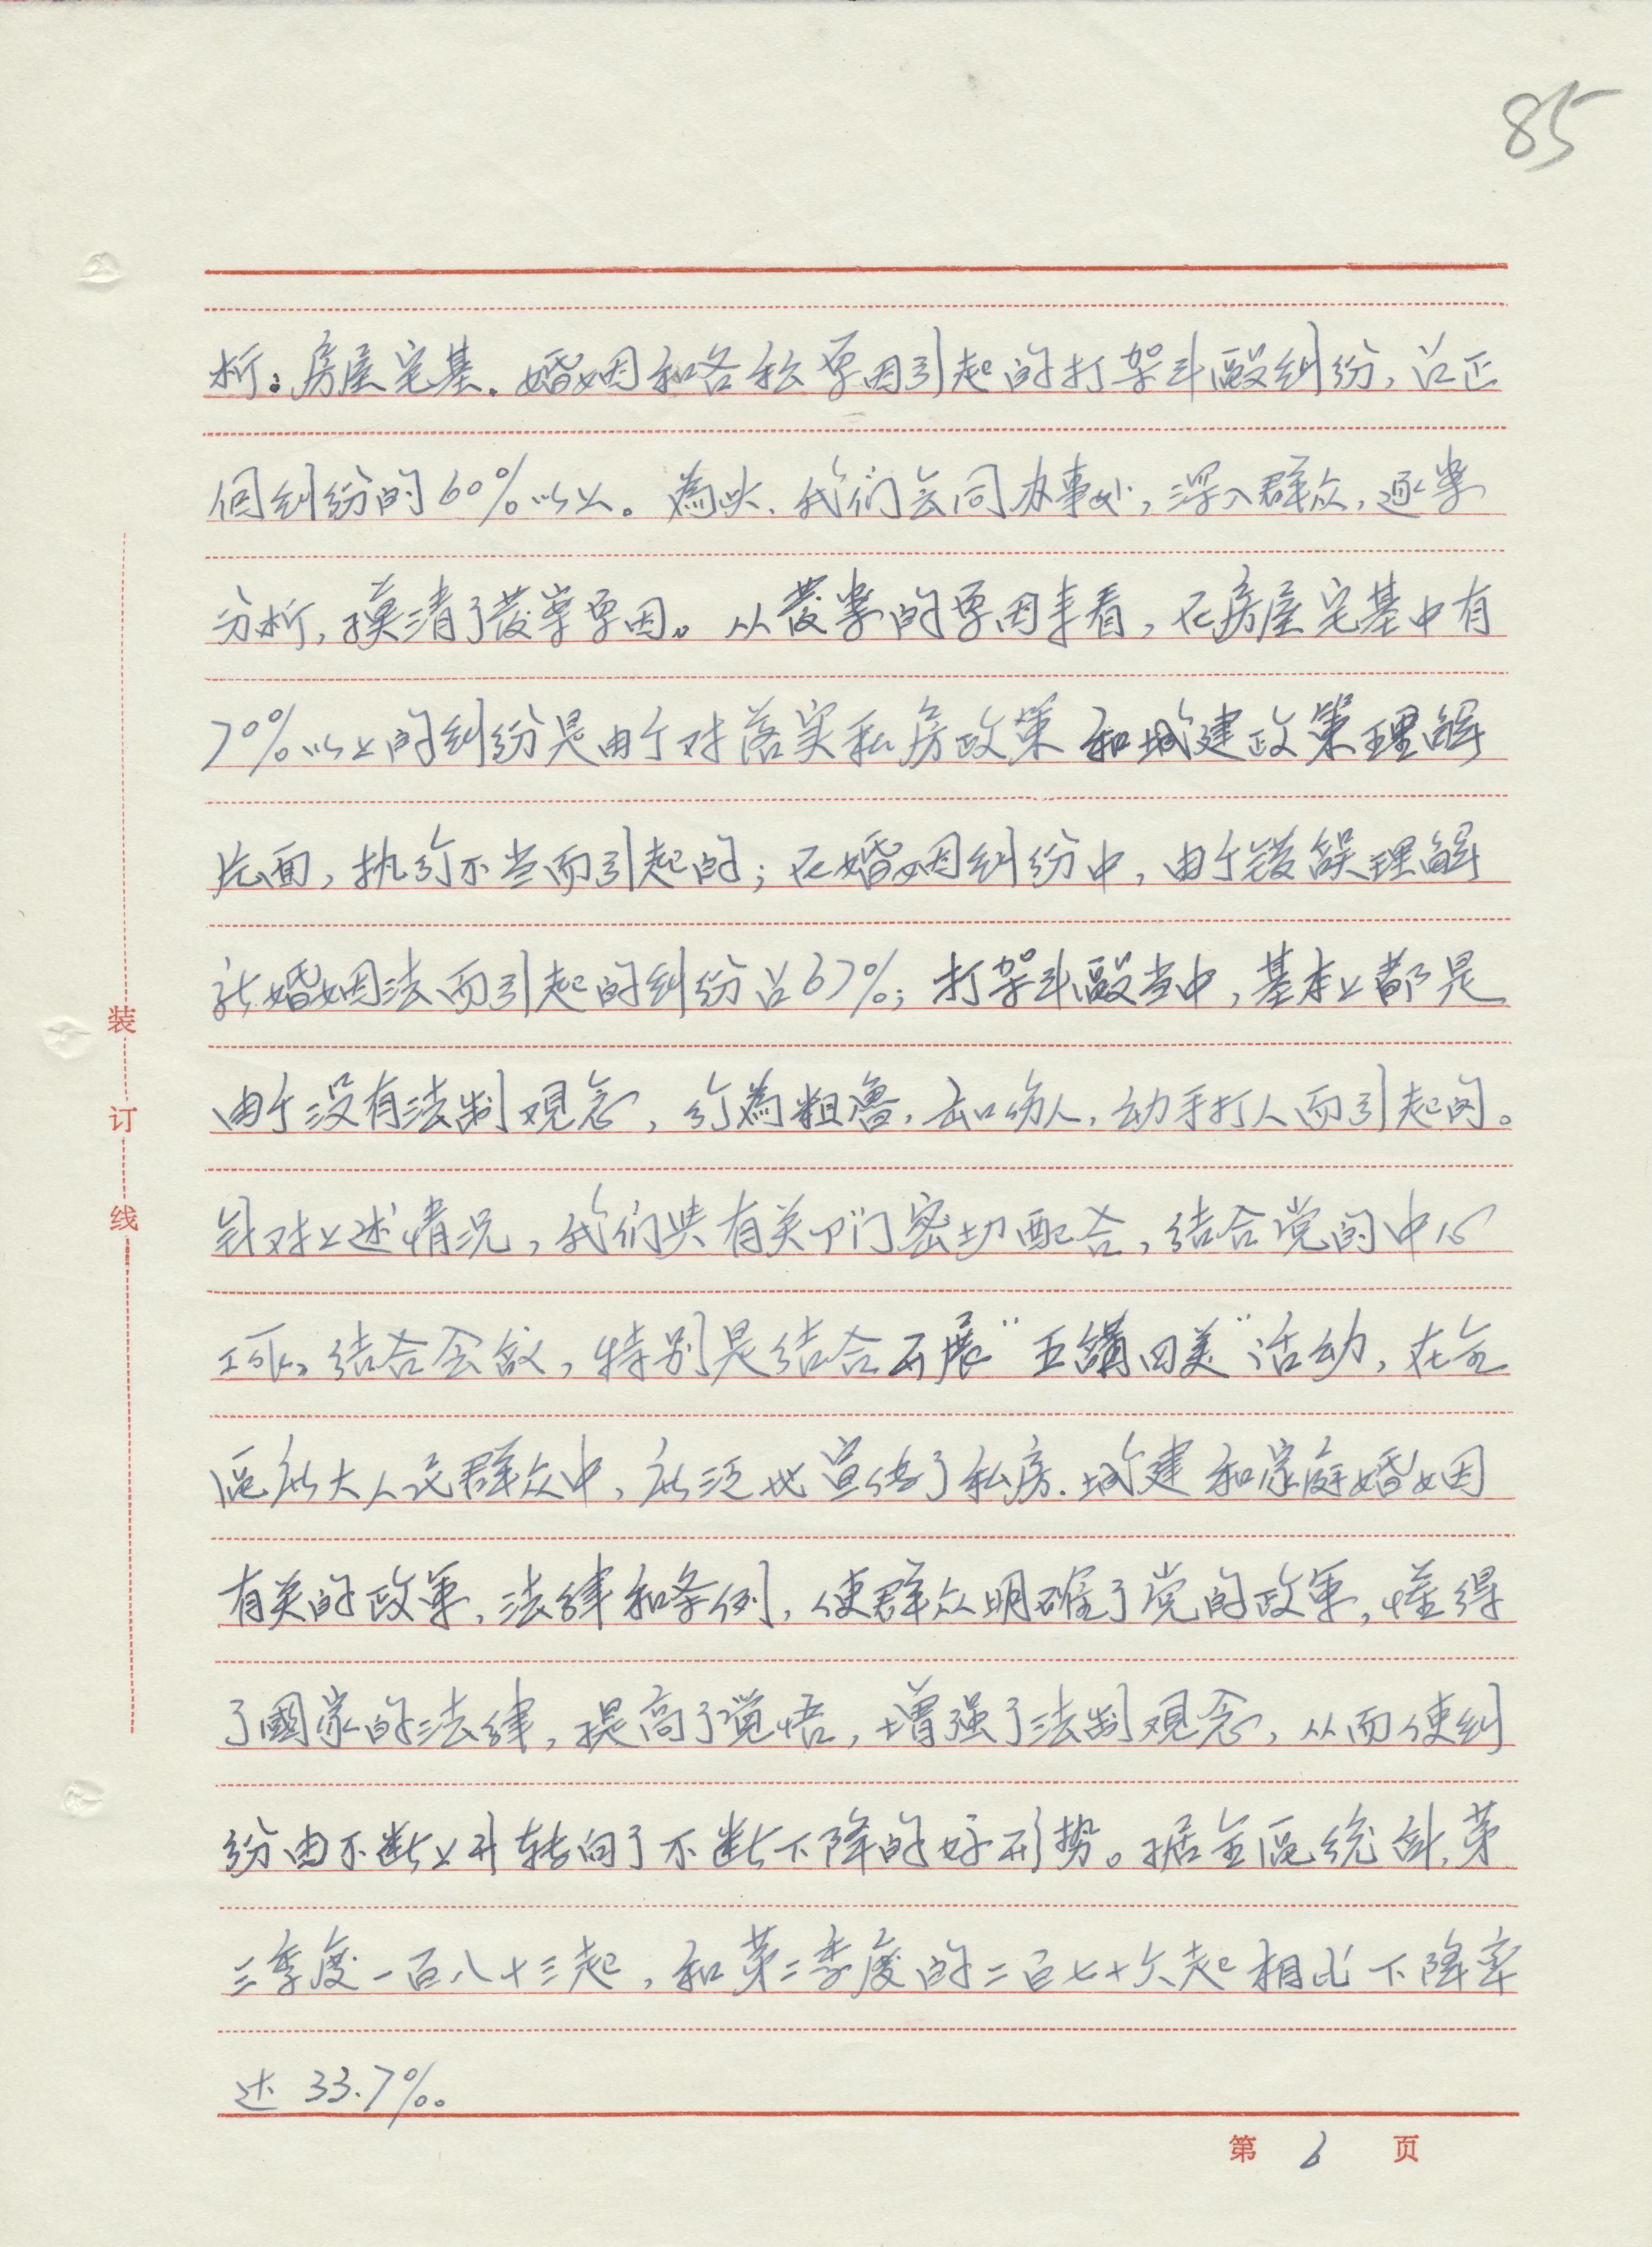 85
析：房屋宅基、婚姻和各种原因引起的打架斗殴纠纷，占正
個纠纷的60％以上。為此、我们会同办事处，深入群众，逐案
分析，摸清了发案原因。从发案的原因来看，在房屋宅基中有
70％以上的纠纷是由于对落实私房政策和城建政策理解
片面，执行不当而引起的；在婚姻纠纷中，由于错误理解
新婚姻法而引起的纠纷占67％；打架斗殴当中，基本上都是
由于没有法制观念，行為粗鲁，出口伤人，动手打人而引起的。
针对上述情况，我们与有关部门密切配合，结合党的中心
工作、结合会议，特别是结合开展“五讲四美”活动，在全
区广大人民群众中，广泛地宣传了私房、城建和家庭婚姻
有关的政策、法律和条例，使群众明确了党的政策，懂得
了國家的法律，提高了觉悟，增强了法制观念，从而使纠
纷由不断上升转向了不断下降的好形势。据全区统计，第
三季度一百八十三起，和第二季度的二百七十六起相比下降率
达33.7％。
装
订
线
第 6 页